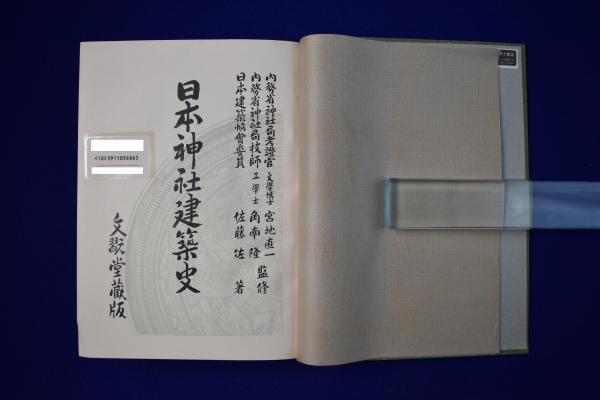 内務省神社局考證官 文學博士 宮地直一
内務省神社局技師 工學士 角南隆 監修
日本建築協會委員 佐藤佐 著
日本神社建築史
文翫堂蔵版
<10>5911056865